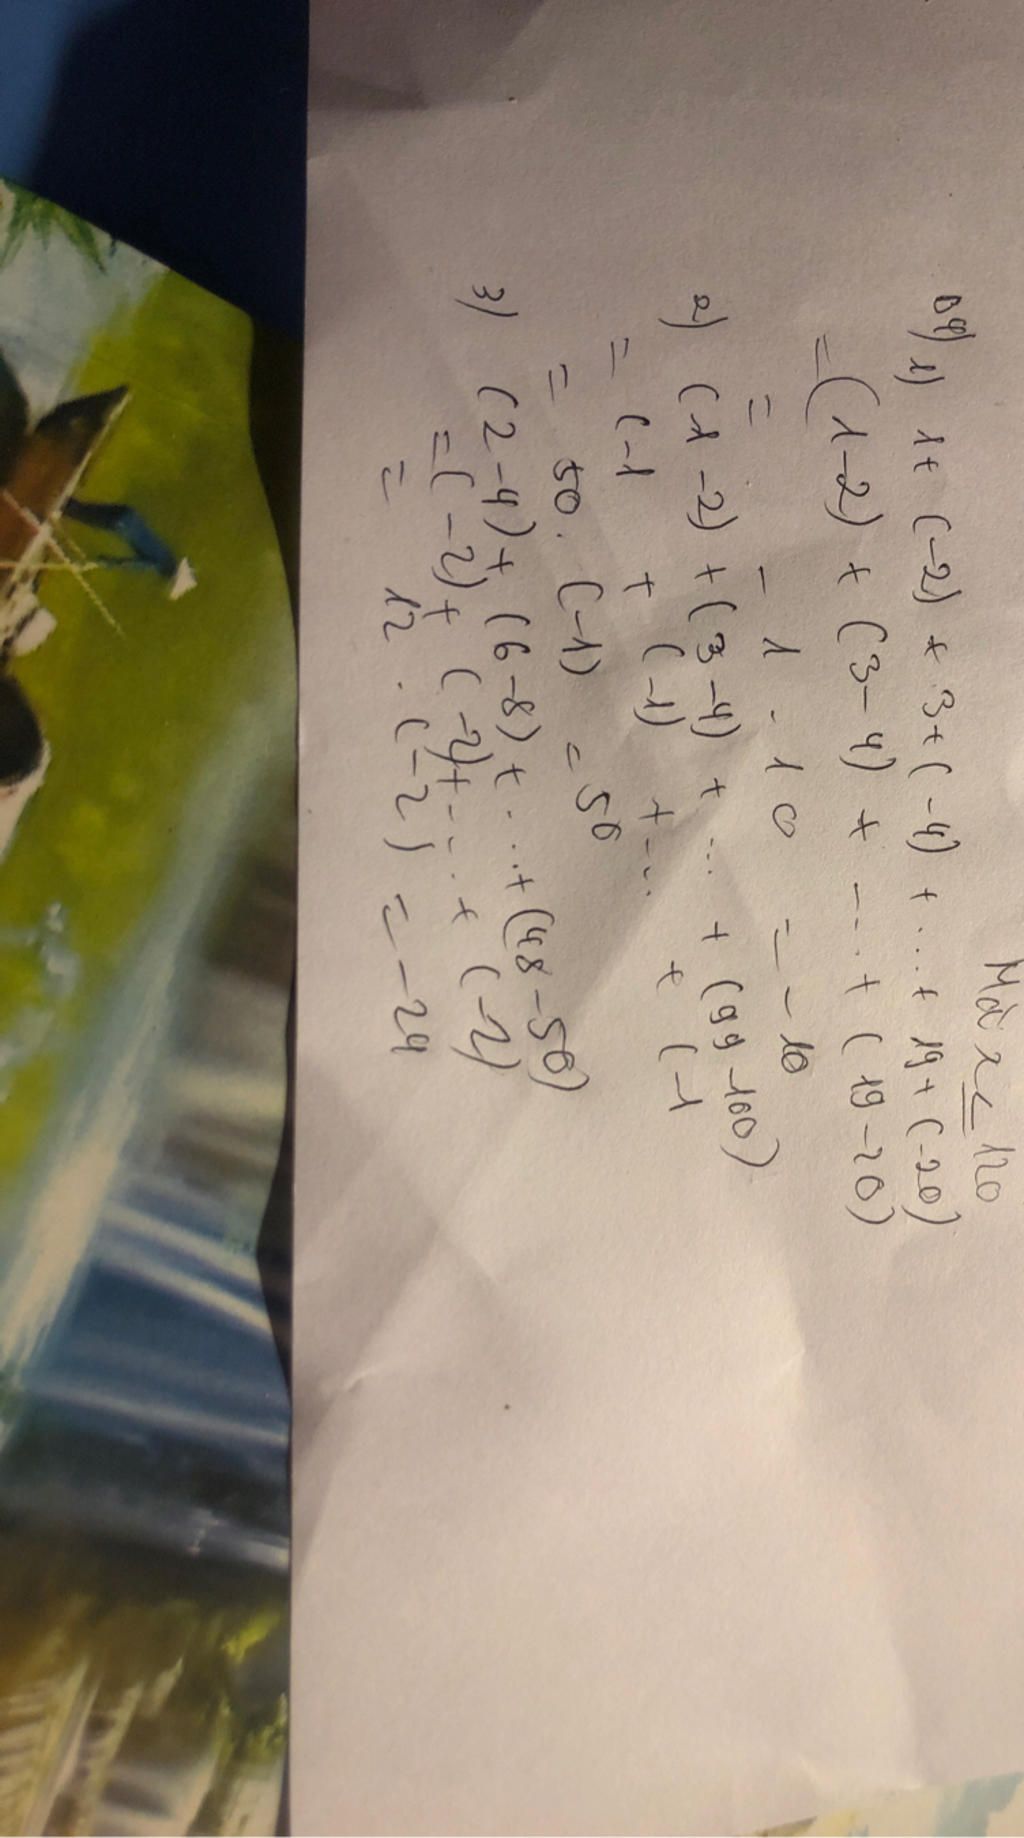 Mà x ≤ 120
B4) 1) 1 + (-2) + 3 + (-4) + ... + 19 + (-20)
= (1-2) + (3-4) + ... + (19-20)
= -1 . 10 = -10
2) (1-2) + (3-4) + ... + (99-100)
= (-1 + (-1) + ... + (-1
= 50 . (-1) = 50
3) (2-4) + (6-8) + ... + (48-50)
= (-2) + (-2) + ... + (-2)
= 12 . (-2) = -24